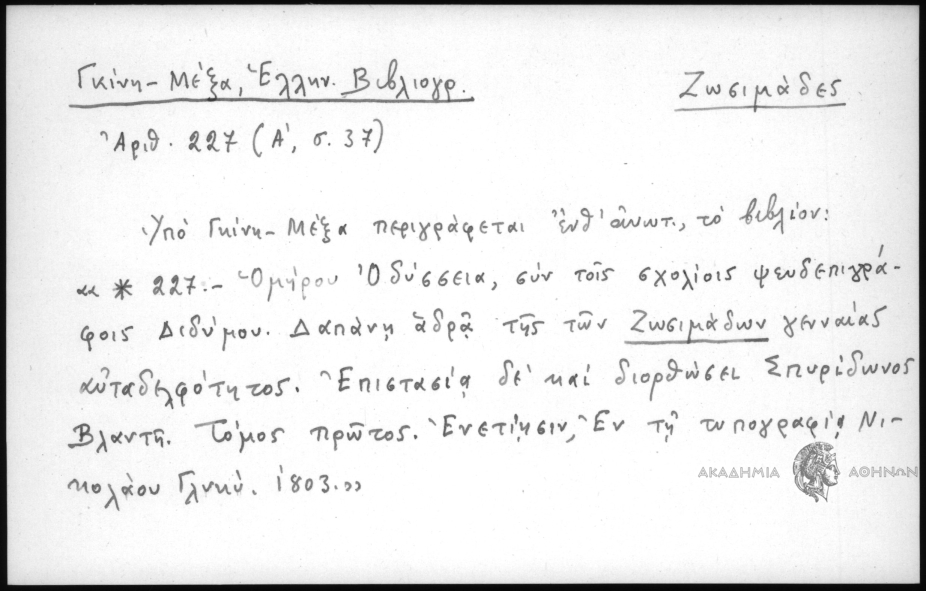 Γκίνη-Μέξα, Ἑλλην. Βιβλιογρ. Ζωσιμάδες
Ἀριθ. 227 (Α', σ. 37)
Ὑπό Γκίνη-Μέξα περιγράφεται ἔνθ' ἄνωτ., τό βιβλίον:
«« * 227.- Ὁμήρου Ὀδύσσεια, σύν τοῖς σχολίοις ψευδεπιγρά-
φοις Διδύμου. Δαπάνῃ ἁδρᾷ τῆς τῶν Ζωσιμάδων γενναίας
αὐταδελφότητος. Ἐπιστασίᾳ δέ καί διορθώσει Σπυρίδωνος
Βλαντῆ. Τόμος πρῶτος. Ἐνετίῃσιν, Ἐν τῇ τυπογραφίᾳ Νι-
κολάου Γλυκύ. 1803.»
ΑΚΑΔΗΜΙΑ ΑΘΗΝΩΝ